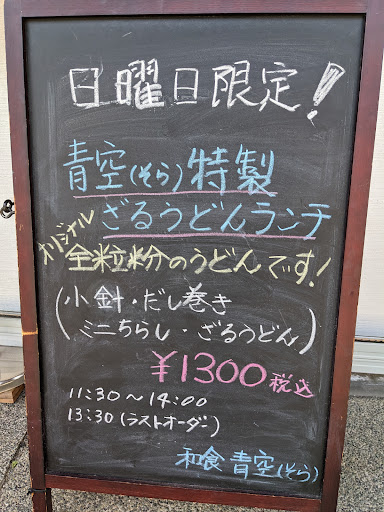 日曜日限定!
青空(そら)特製
ざるうどんランチ
オリジナル
全粒粉のうどんです!
(小針・だし巻き
ミニちらし・ざるうどん)
¥1300税込
11:30〜14:00
13:30(ラストオーダー)
和食 青空(そら)